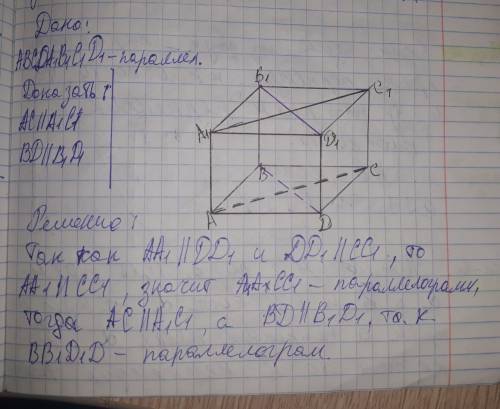 Дано:
ABCDA1B1C1D1-параллел.
Доказать:
AC||A1C1
BD||B1D1
B1
C1
A1
D1
B
C
A
D
Решение:
Так как AA1||DD1 и DD1||CC1, то
AA1||CC1, значит A1ACC1-параллелограмм,
тогда AC||A1C1, а BD||B1D1, т.к
BB1D1D-параллелограм.